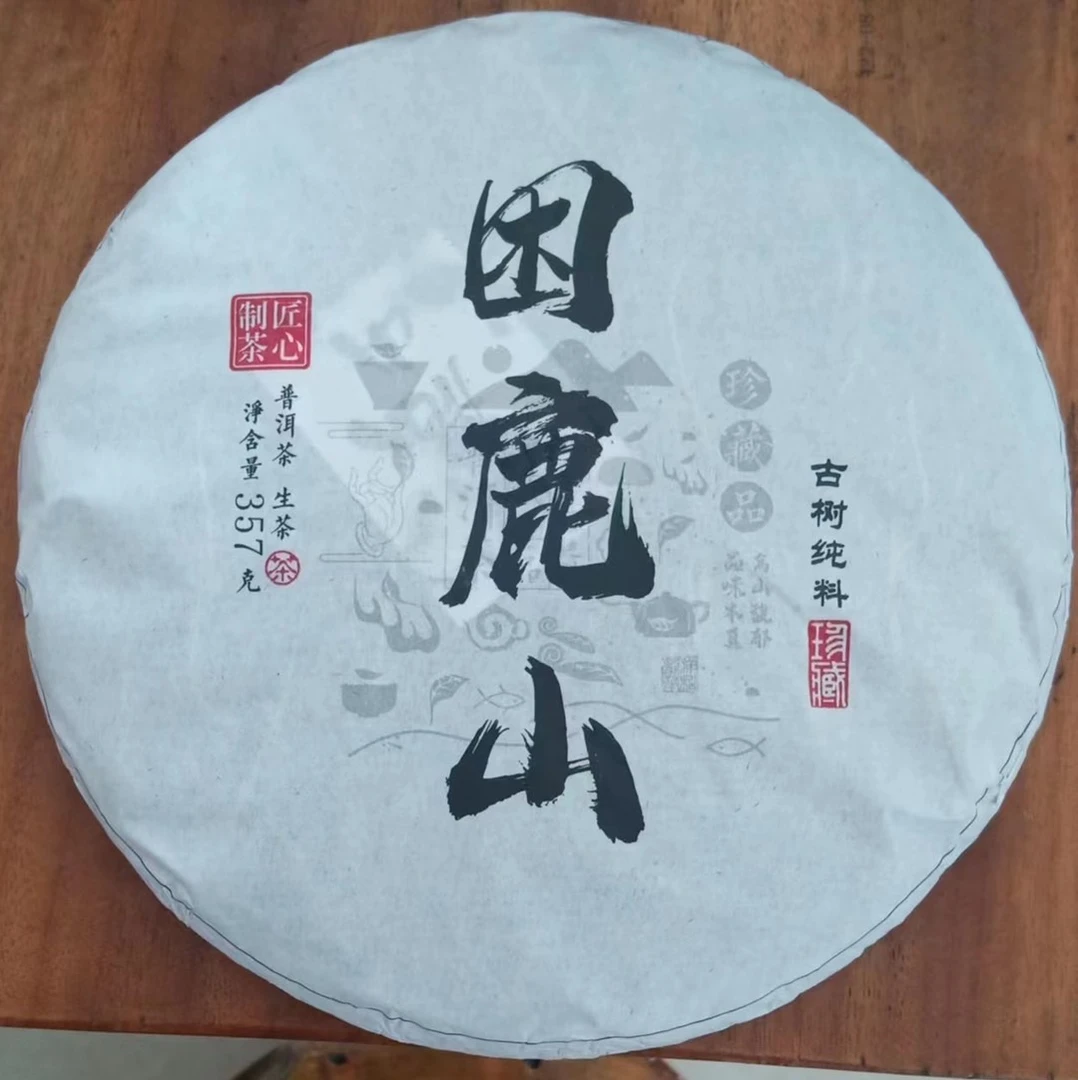 困鹿山
古树纯料
珍藏
珍藏品
品味木真
匠心
制茶
普洱茶 生茶
茶
淨含量357克